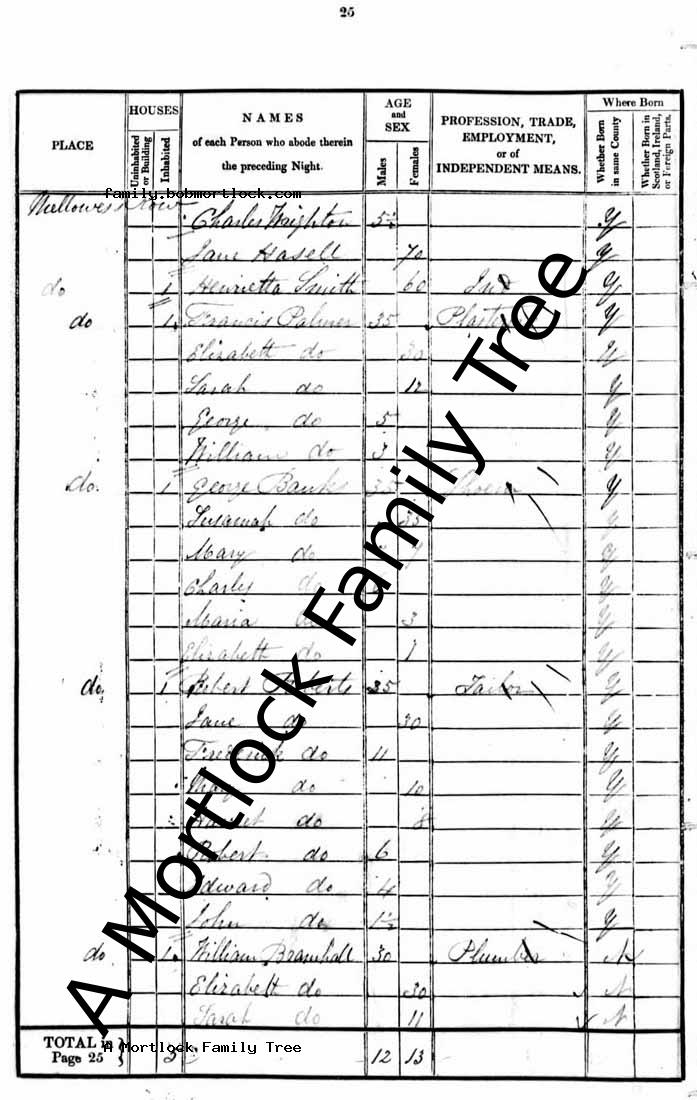 25
PLACE HOUSES Uninhabited or Building Inhabited NAMES of each Person who abode therein the preceding Night. AGE and SEX Males Females PROFESSION, TRADE, EMPLOYMENT, or of INDEPENDENT MEANS. Where Born Whether Born in same County Whether Born in Scotland, Ireland, or Foreign Parts.
family.bobmortlock.com
Charles Wrighton Y
Jane Hasell 70 Y
do 1 Henrietta Smith 60 Ind Y
do 1 Francis Palmer 35 Y
Elizabeth do 30 Y
Sarah do 12 Y
George do 5 Y
William do 3 Y
Do. 1 George Banks 35 Y
Susannah do 35 Y
Mary do 7 Y
Charles do Y
Maria do 3 Y
Elizabeth do 1 Y
do 1 Robert Roberts 35 Tailor Y
Jane do 30 Y
Frederick do 11 Y
do 10 Y
do 8 Y
Robert do 6 Y
Edward do 4 Y
John do 1½ Y
do 1 William Bramhall 30 Plumber N
Elizabeth do 30 N
Sarah do 11 N
TOTAL in Page 25 12 13
A Mortlock Family Tree
A Mortlock Family Tree